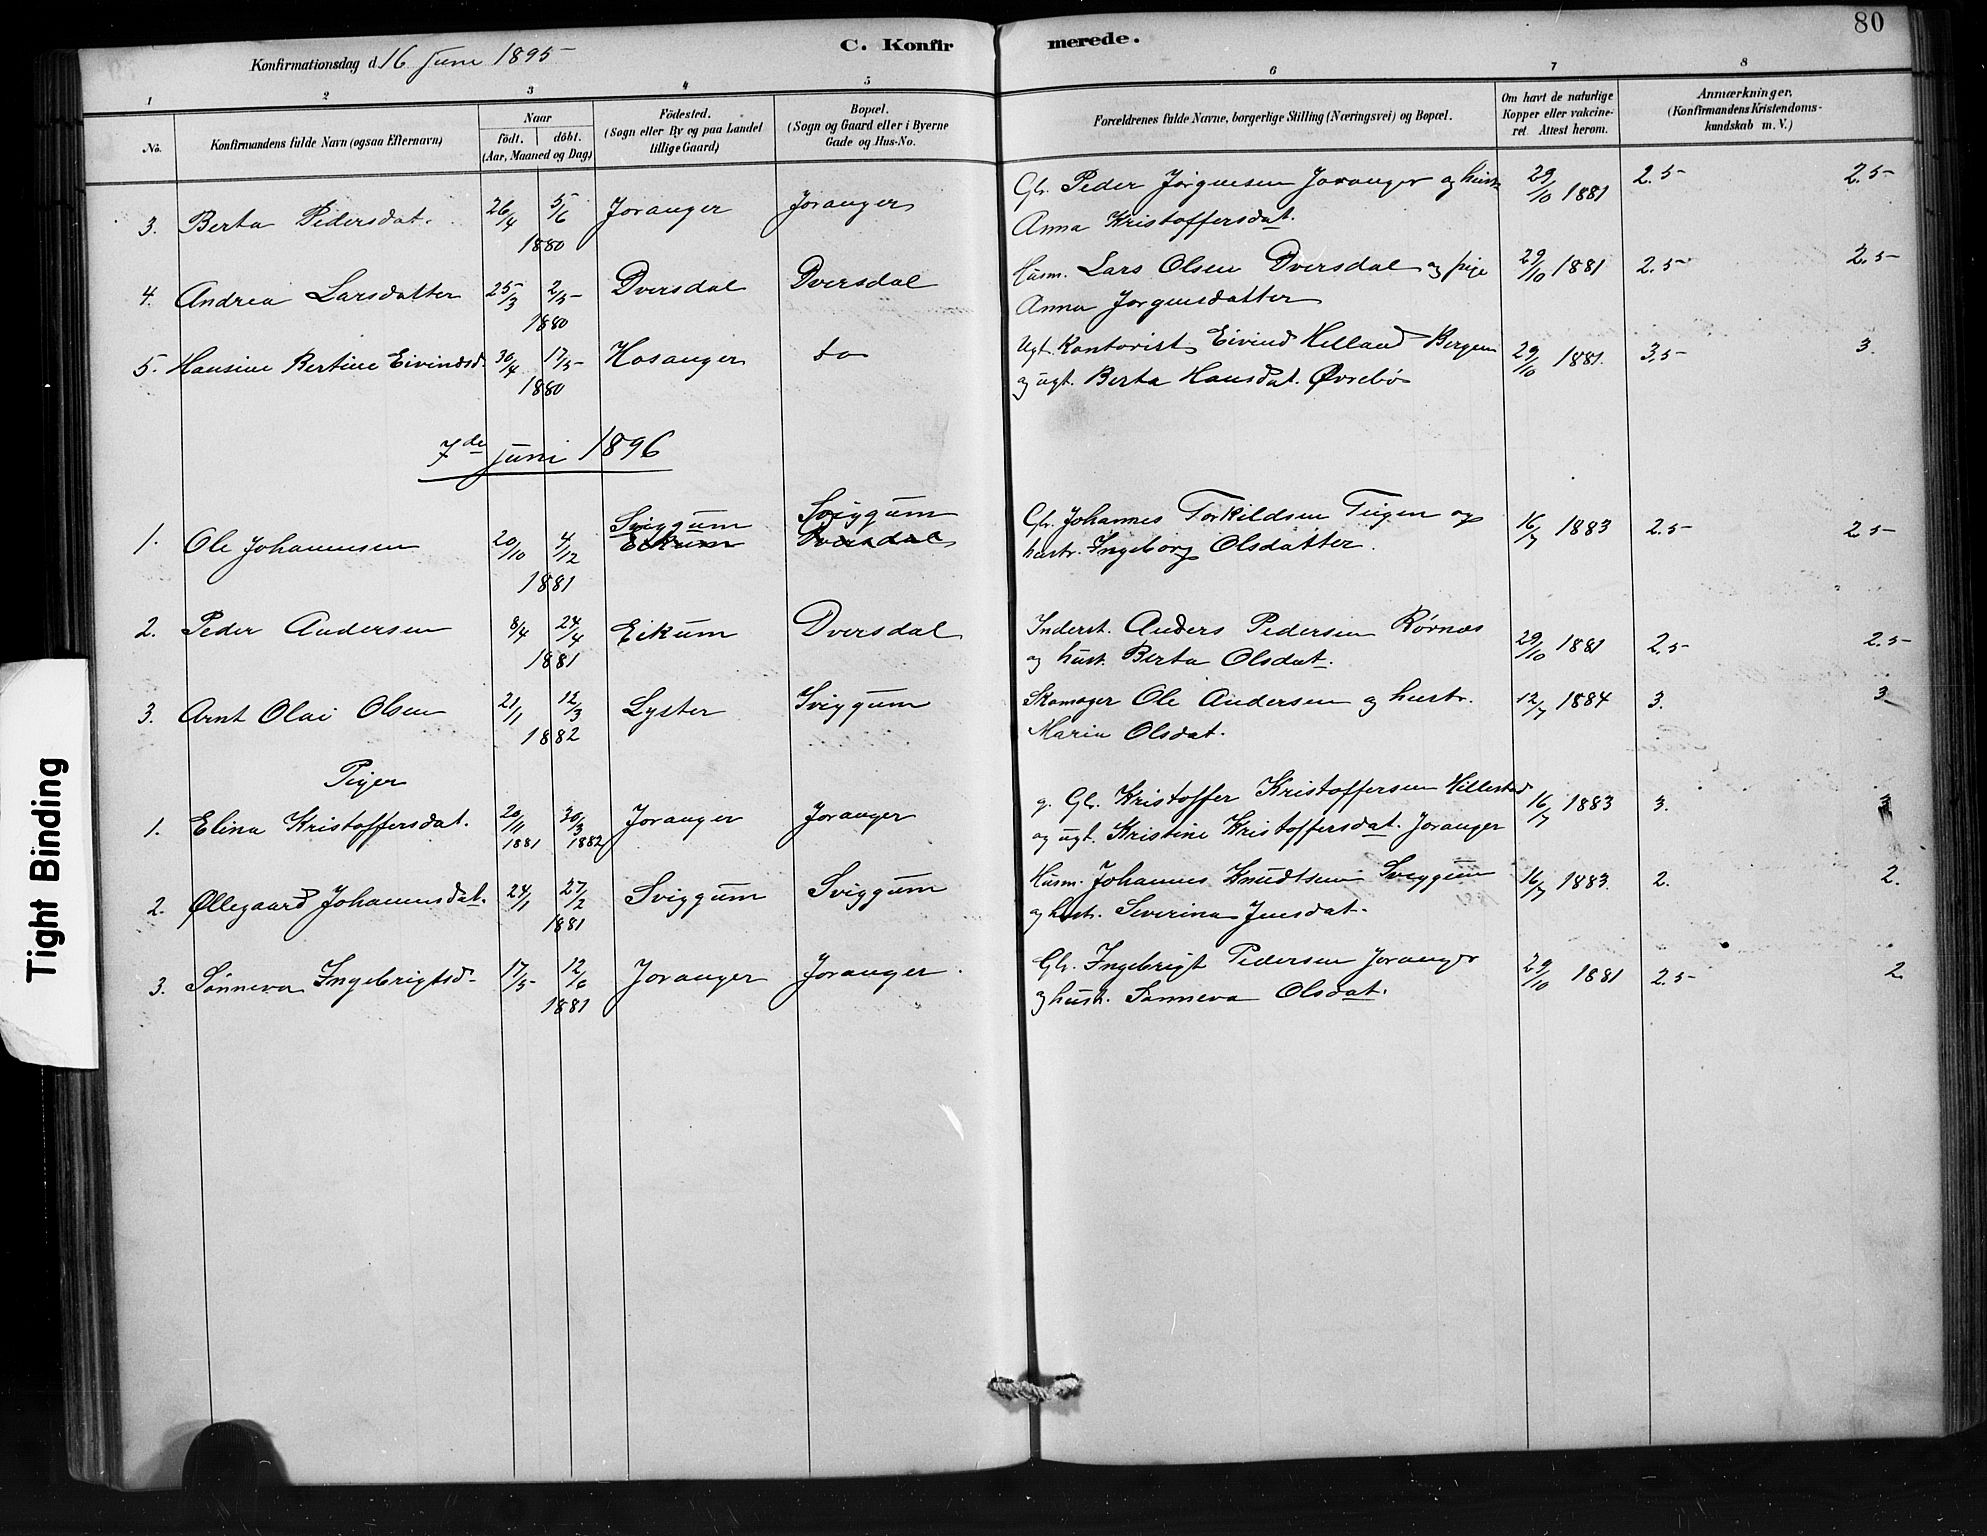 80
C. Konfirmerede.
Konfirmationsdag d. 16 Juni 1895
1 2 3 4 5 6 7 8
No.
Konfirmandens fulde Navn (ogsaa Efternavn)
Naar
født. døbt.
(Aar, Maaned og Dag)
Fødested.
(Sogn eller By og paa Landet
tillige Gaard)
Bopæl.
(Sogn og Gaard eller i Byerne
Gade og Hus-No.
Forældrenes fulde Navne, borgerlige Stilling (Næringsvei) og Bopæl.
Om havt de naturlige
Kopper eller vakcine-
ret Attest herom.
Anmærkninger.
(Konfirmandens Kristendoms-
kundskab m. V.)
3. Berta Pedersdat. 26/4 5/6 1880 Joranger Joranger Gbr. Peder Jørgensen Joranger og hustr. 29/10 1881 2.5 2.5
Anna Kristoffersdat.
4. Andrea Larsdatter 25/3 2/5 1880 Dversdal Dversdal Husm. Lars Olsen Dversdal og pige 29/10 1881 2.5 2.5
Anna Jørgensdatter
5. Hansine Bertine Eivindsd. 30/4 17/5 1880 Hosanger do Ugt. Kontorist Eivind Helland Bergen 29/10 1881. 3.5 3.
og ugt. Berta Hansdat. Øvrebø
7de juni 1896
1. Ole Johannesen 20/10 4/12 1881 Sviggum Eikum Sviggum Dversdal Gbr. Johannes Torkildsen Teigen og 16/7 1883 2.5 2.5
hustr. Ingeborg Olsdatter.
2. Peder Andersen 8/4 24/4 1881 Eikum Dversdal Inderst. Anders Pedersen Rørnæs 29/10 1881 2.5 2.5
og hust. Berta Olsdat.
3. Arnt Olai Olsen 21/1 12/3 1882 Lyster Sviggum Skomager Ole Andersen og hustr. 12/7 1884 3. 3
Maria Olsdat.
Piger
1. Elina Kristoffersdat. 20/11 1881 30/3 1882 Joranger Joranger g. Gbr. Kristoffer Kristoffersen Hillestad 16/7 1883 3. 3
og ugt. Kristine Kristoffersdat. Joranger
2. Øllegaard Johannesdat. 24/1 27/2 1881 Sviggum Sviggum Husm. Johannes Knudtsen Sviggum 16/7 1883. 2. 2.
og hustr. Severina Jensdat.
3. Sønneva Ingebrigtsd. 17/5 12/6 1881 Joranger Joranger. Gbr. Ingebrigt Pedersen Joranger 29/10 1881 2.5 2
og hustr. Sønneva Olsdat.
Tight Binding